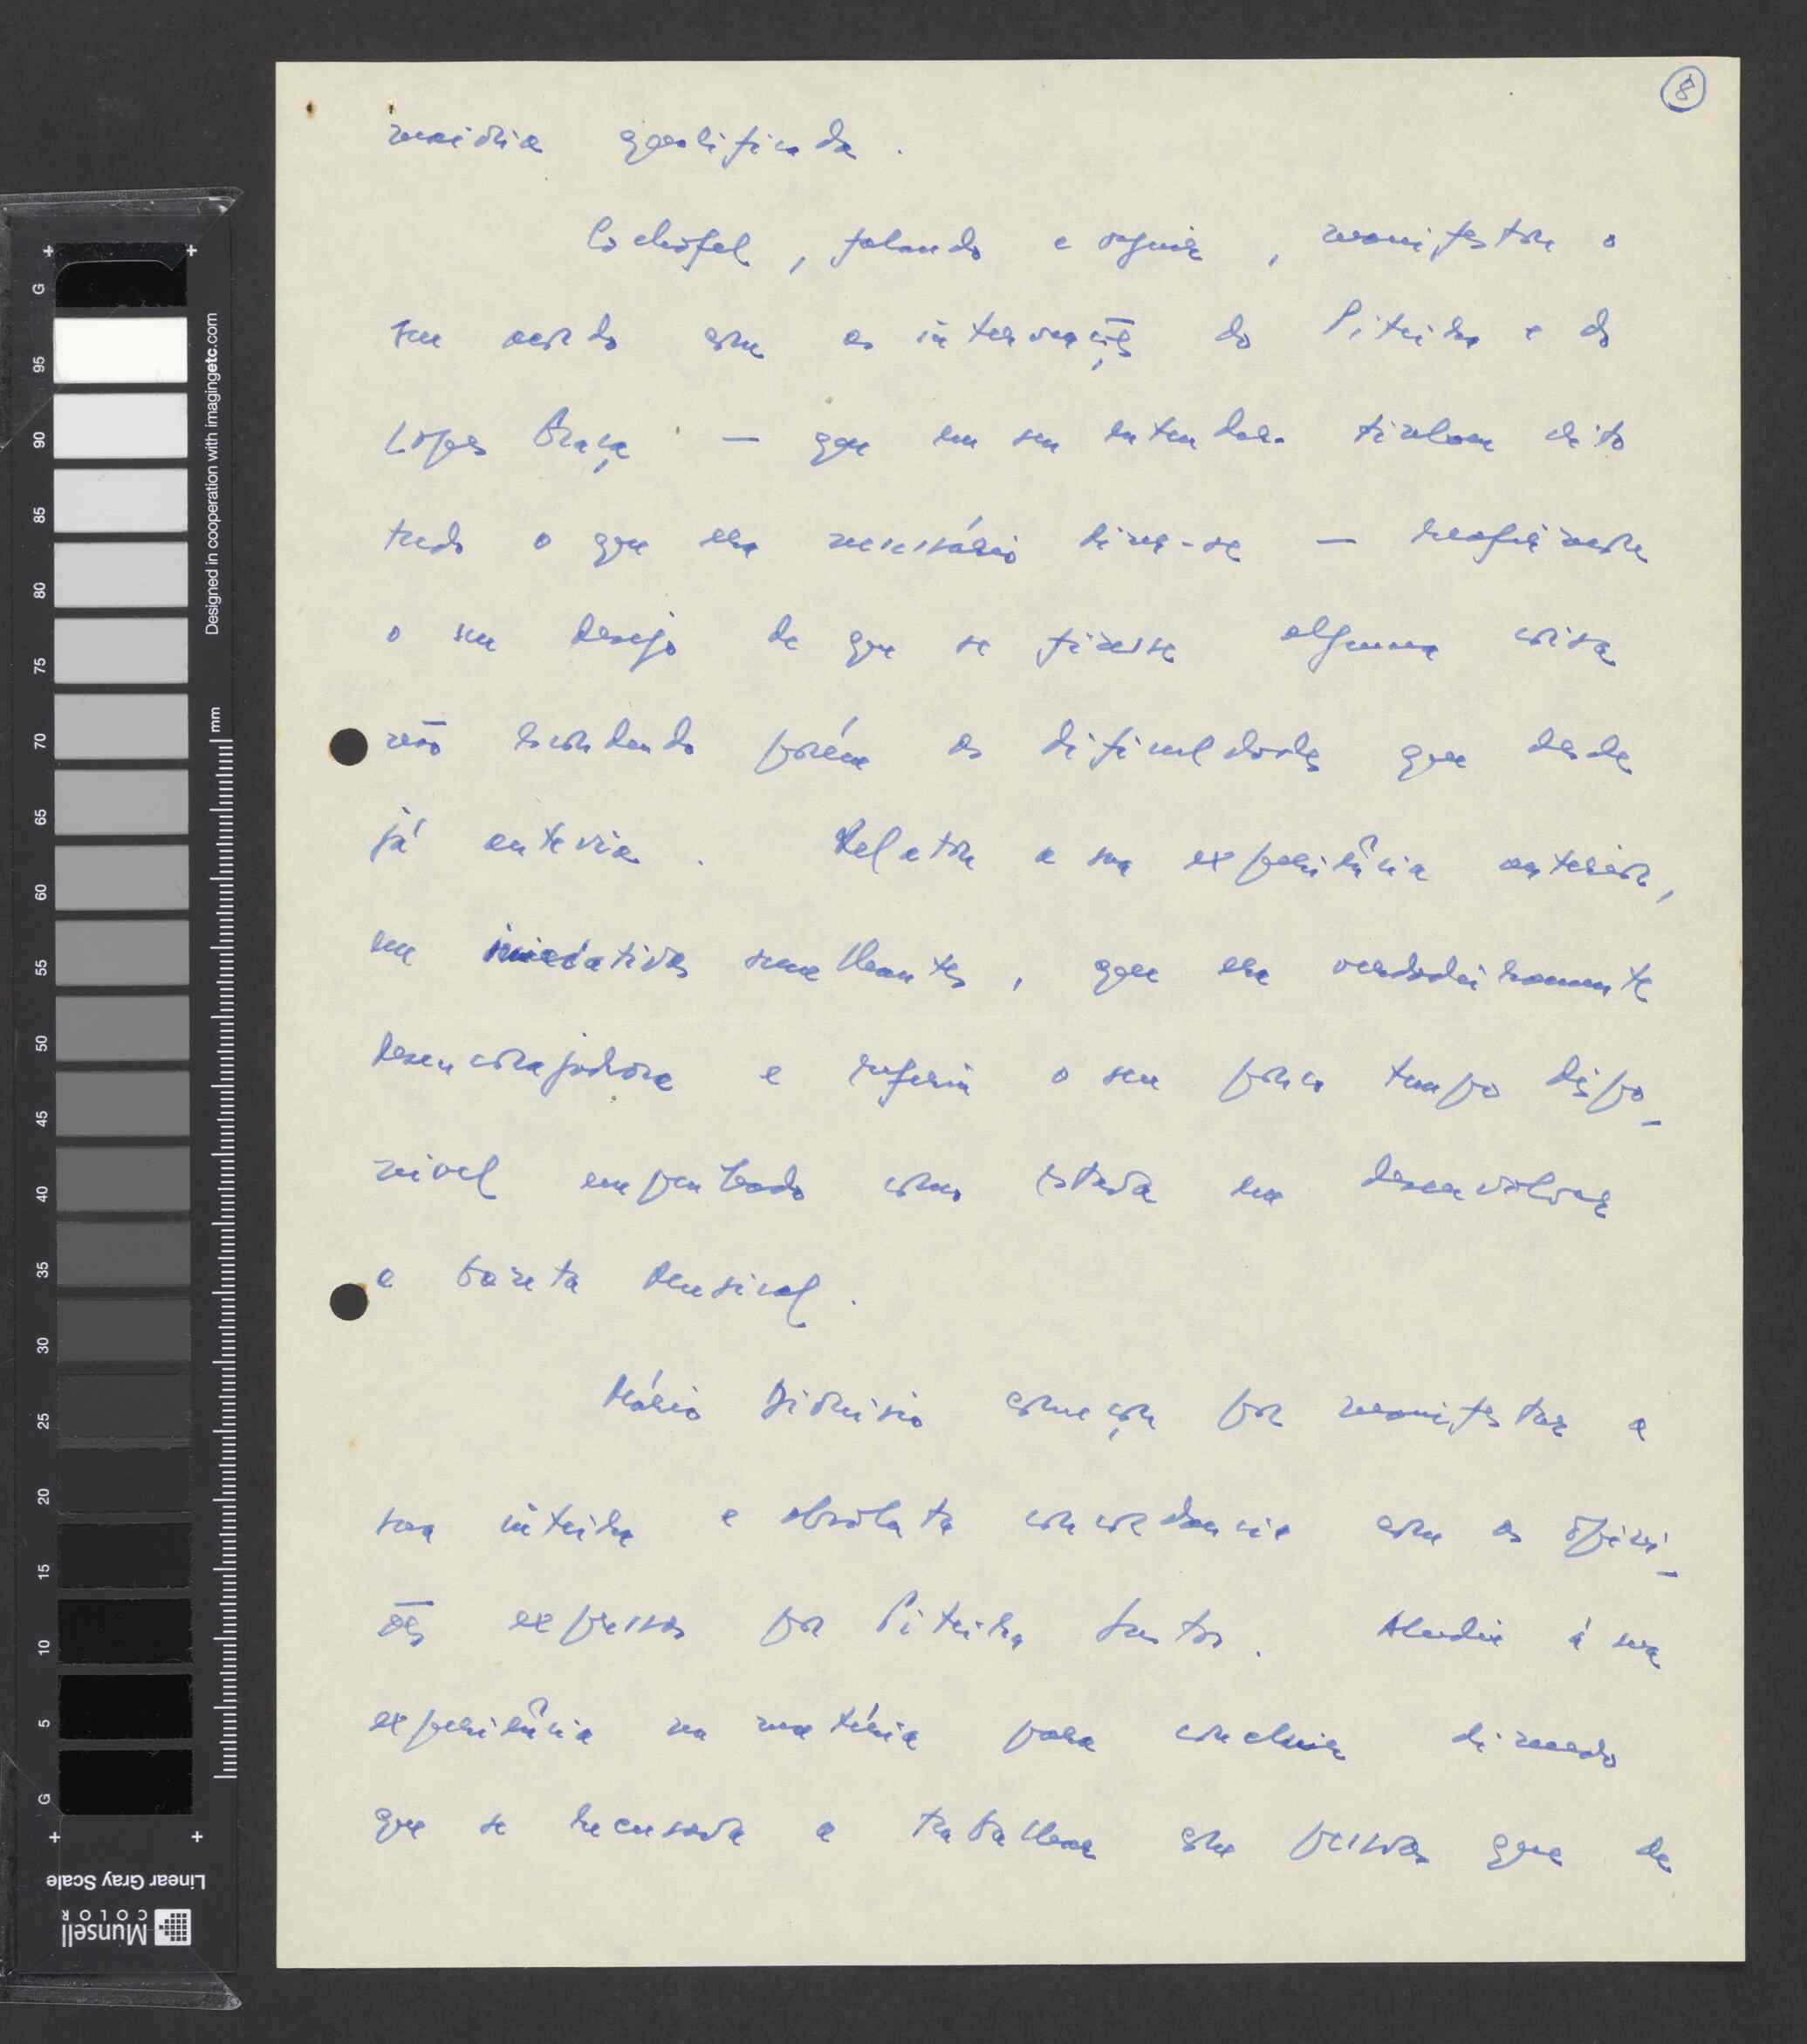 8
maioria qualificada.
Cochofel, falando a seguir, manifestou o
seu acordo com as intervenções do Piteira e do
Lopes Graça — que em seu entender tinham dito
tudo o que era necessário dizer-se — reafirmou
o seu desejo de que se fizesse alguma coisa
não escondendo porém as dificuldades que desde
já antevia. Relatou a sua experiência anterior,
em iniciativas semelhantes, que era verdadeiramente
desencorajadora e referiu o seu pouco tempo dispo-
nivel empenhado como estava em desenvolver
a Gazeta Musical.
Mário Dionísio começou por manifestar a
sua inteira e absoluta concordancia com as opini-
ões expressas por Piteira Santos. Aludiu á sua
experiência na matéria para concluir dizendo
que se recusava a trabalhar com pessoas que de
G
95
90
85
80
75
70
65
60
55
50
45
40
35
30
25
20
15
10
5
G
mm
Designed in cooperation with imagingetc.com
Linear Gray Scale
Munsell
COLOR